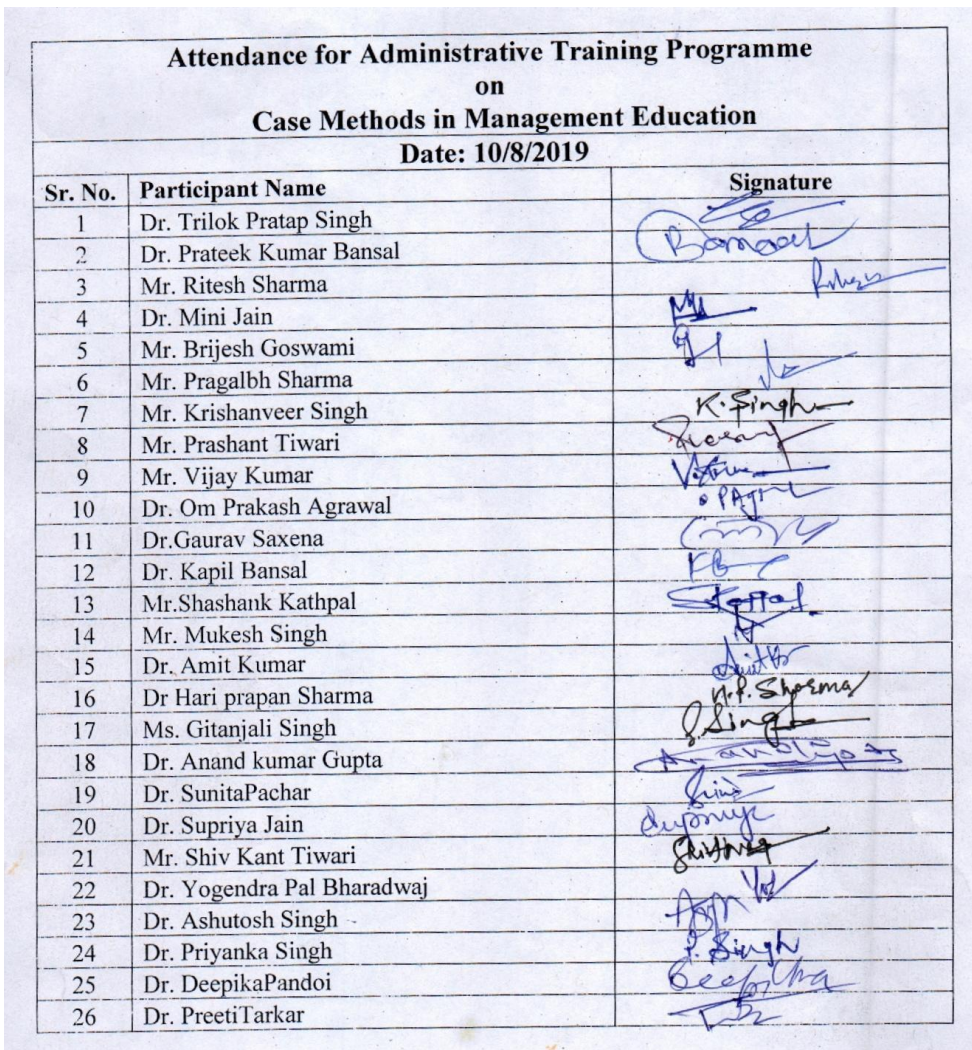 Attendance for Administrative Training Programme
on
Case Methods in Management Education
Date: 10/8/2019
Sr. No. Participant Name Signature
1 Dr. Trilok Pratap Singh
2 Dr. Prateek Kumar Bansal Bansal
3 Mr. Ritesh Sharma
4 Dr. Mini Jain
5 Mr. Brijesh Goswami
6 Mr. Pragalbh Sharma
7 Mr. Krishanveer Singh K. Singh
8 Mr. Prashant Tiwari
9 Mr. Vijay Kumar
10 Dr. Om Prakash Agrawal
11 Dr.Gaurav Saxena
12 Dr. Kapil Bansal KB
13 Mr.Shashank Kathpal
14 Mr. Mukesh Singh
15 Dr. Amit Kumar
16 Dr Hari prapan Sharma H.P. Sharma
17 Ms. Gitanjali Singh G. Singh
18 Dr. Anand kumar Gupta
19 Dr. SunitaPachar
20 Dr. Supriya Jain
21 Mr. Shiv Kant Tiwari
22 Dr. Yogendra Pal Bharadwaj
23 Dr. Ashutosh Singh
24 Dr. Priyanka Singh P. Singh
25 Dr. DeepikaPandoi Deepikha
26 Dr. PreetiTarkar